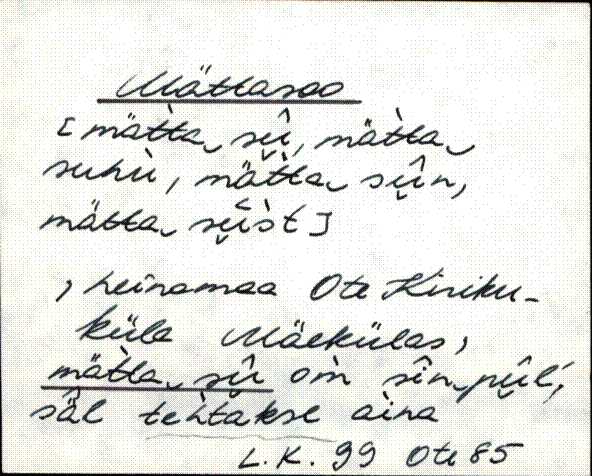 Mättasoo
[mät̀ta‿sụ̂, mät̀ta‿
suhù, mät̀ta‿sụ̂n,
mätta‿sụ̂st]
, heinamaa Ote Kiriku-
küla Mäekülas,
mät̀ta‿sụ̂ om̀ sîn‿pụ̂l´,
säl tehtäkse aina
L.K. 99 Ote 85